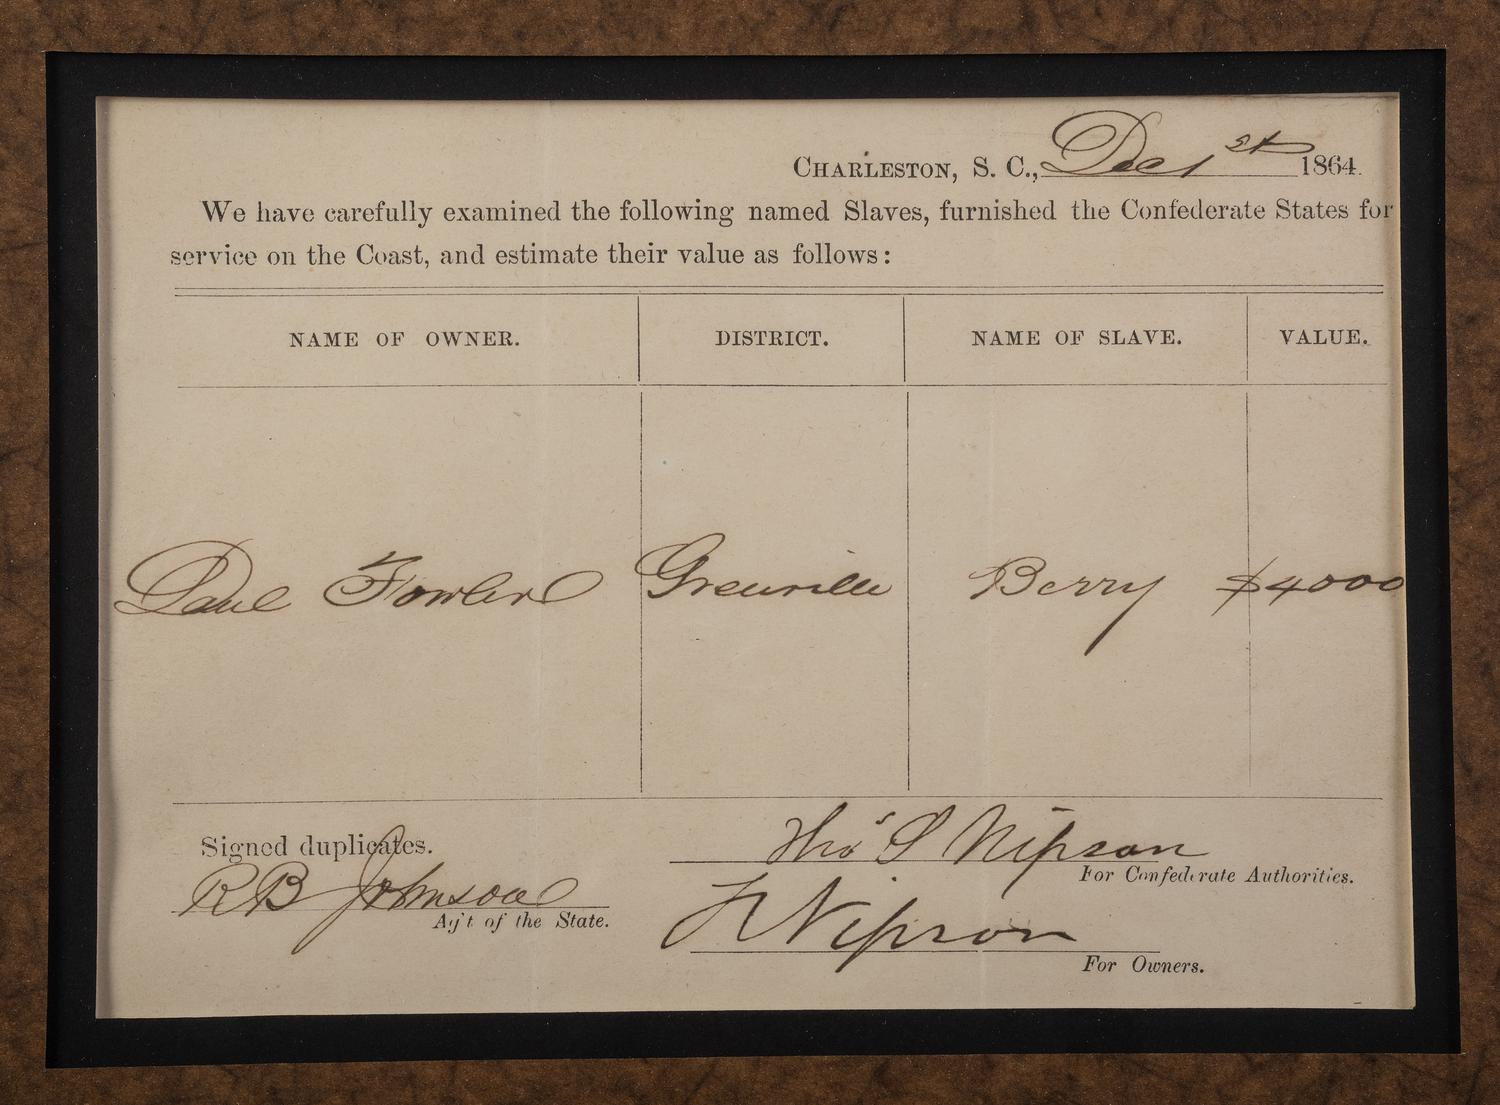 CHARLESTON, S. C., Dec 1st 1864.
We have carefully examined the following named Slaves, furnished the Confederate States for
service on the Coast, and estimate their value as follows:
NAME OF OWNER. DISTRICT. NAME OF SLAVE. VALUE.
Paul Fowler Greenville Berry $4000
Signed duplicates.
Thos S Nipson
For Confederate Authorities.
R B Johnson
Ag't of the State.
Nipson
For Owners.